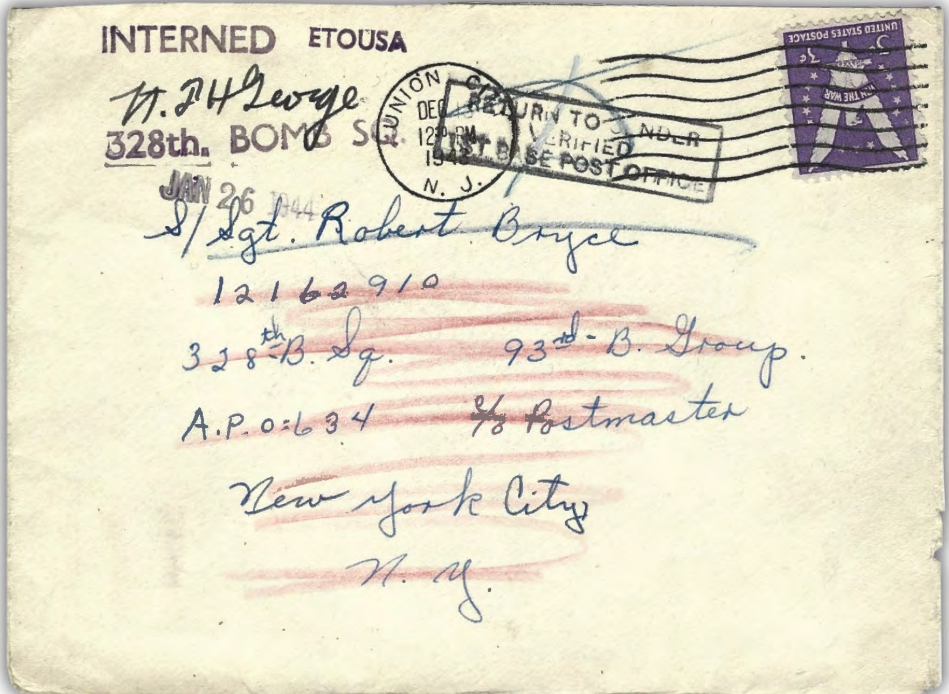 INTERNED ETOUSA
328th. BOMB SQ.
JAN 26 1944
UNION
DEC
12 PM
N. J.
RETURN TO SENDER
VERIFIED
1ST BASE POST OFFICE
UNITED STATES POSTAGE
3¢ 3¢
WIN THE WAR
S/Sgt. Robert Bryce
12162910
328th B. Sq. 93rd - B. Group.
A.P.O: 634 c/o Postmaster
New York City,
N. Y.